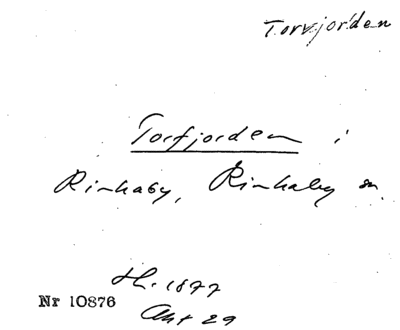 Torvjorden
Torfjorden i
Rinkaby, Rinkaby sn.
H. 1877
Nr 10876
Akt 29